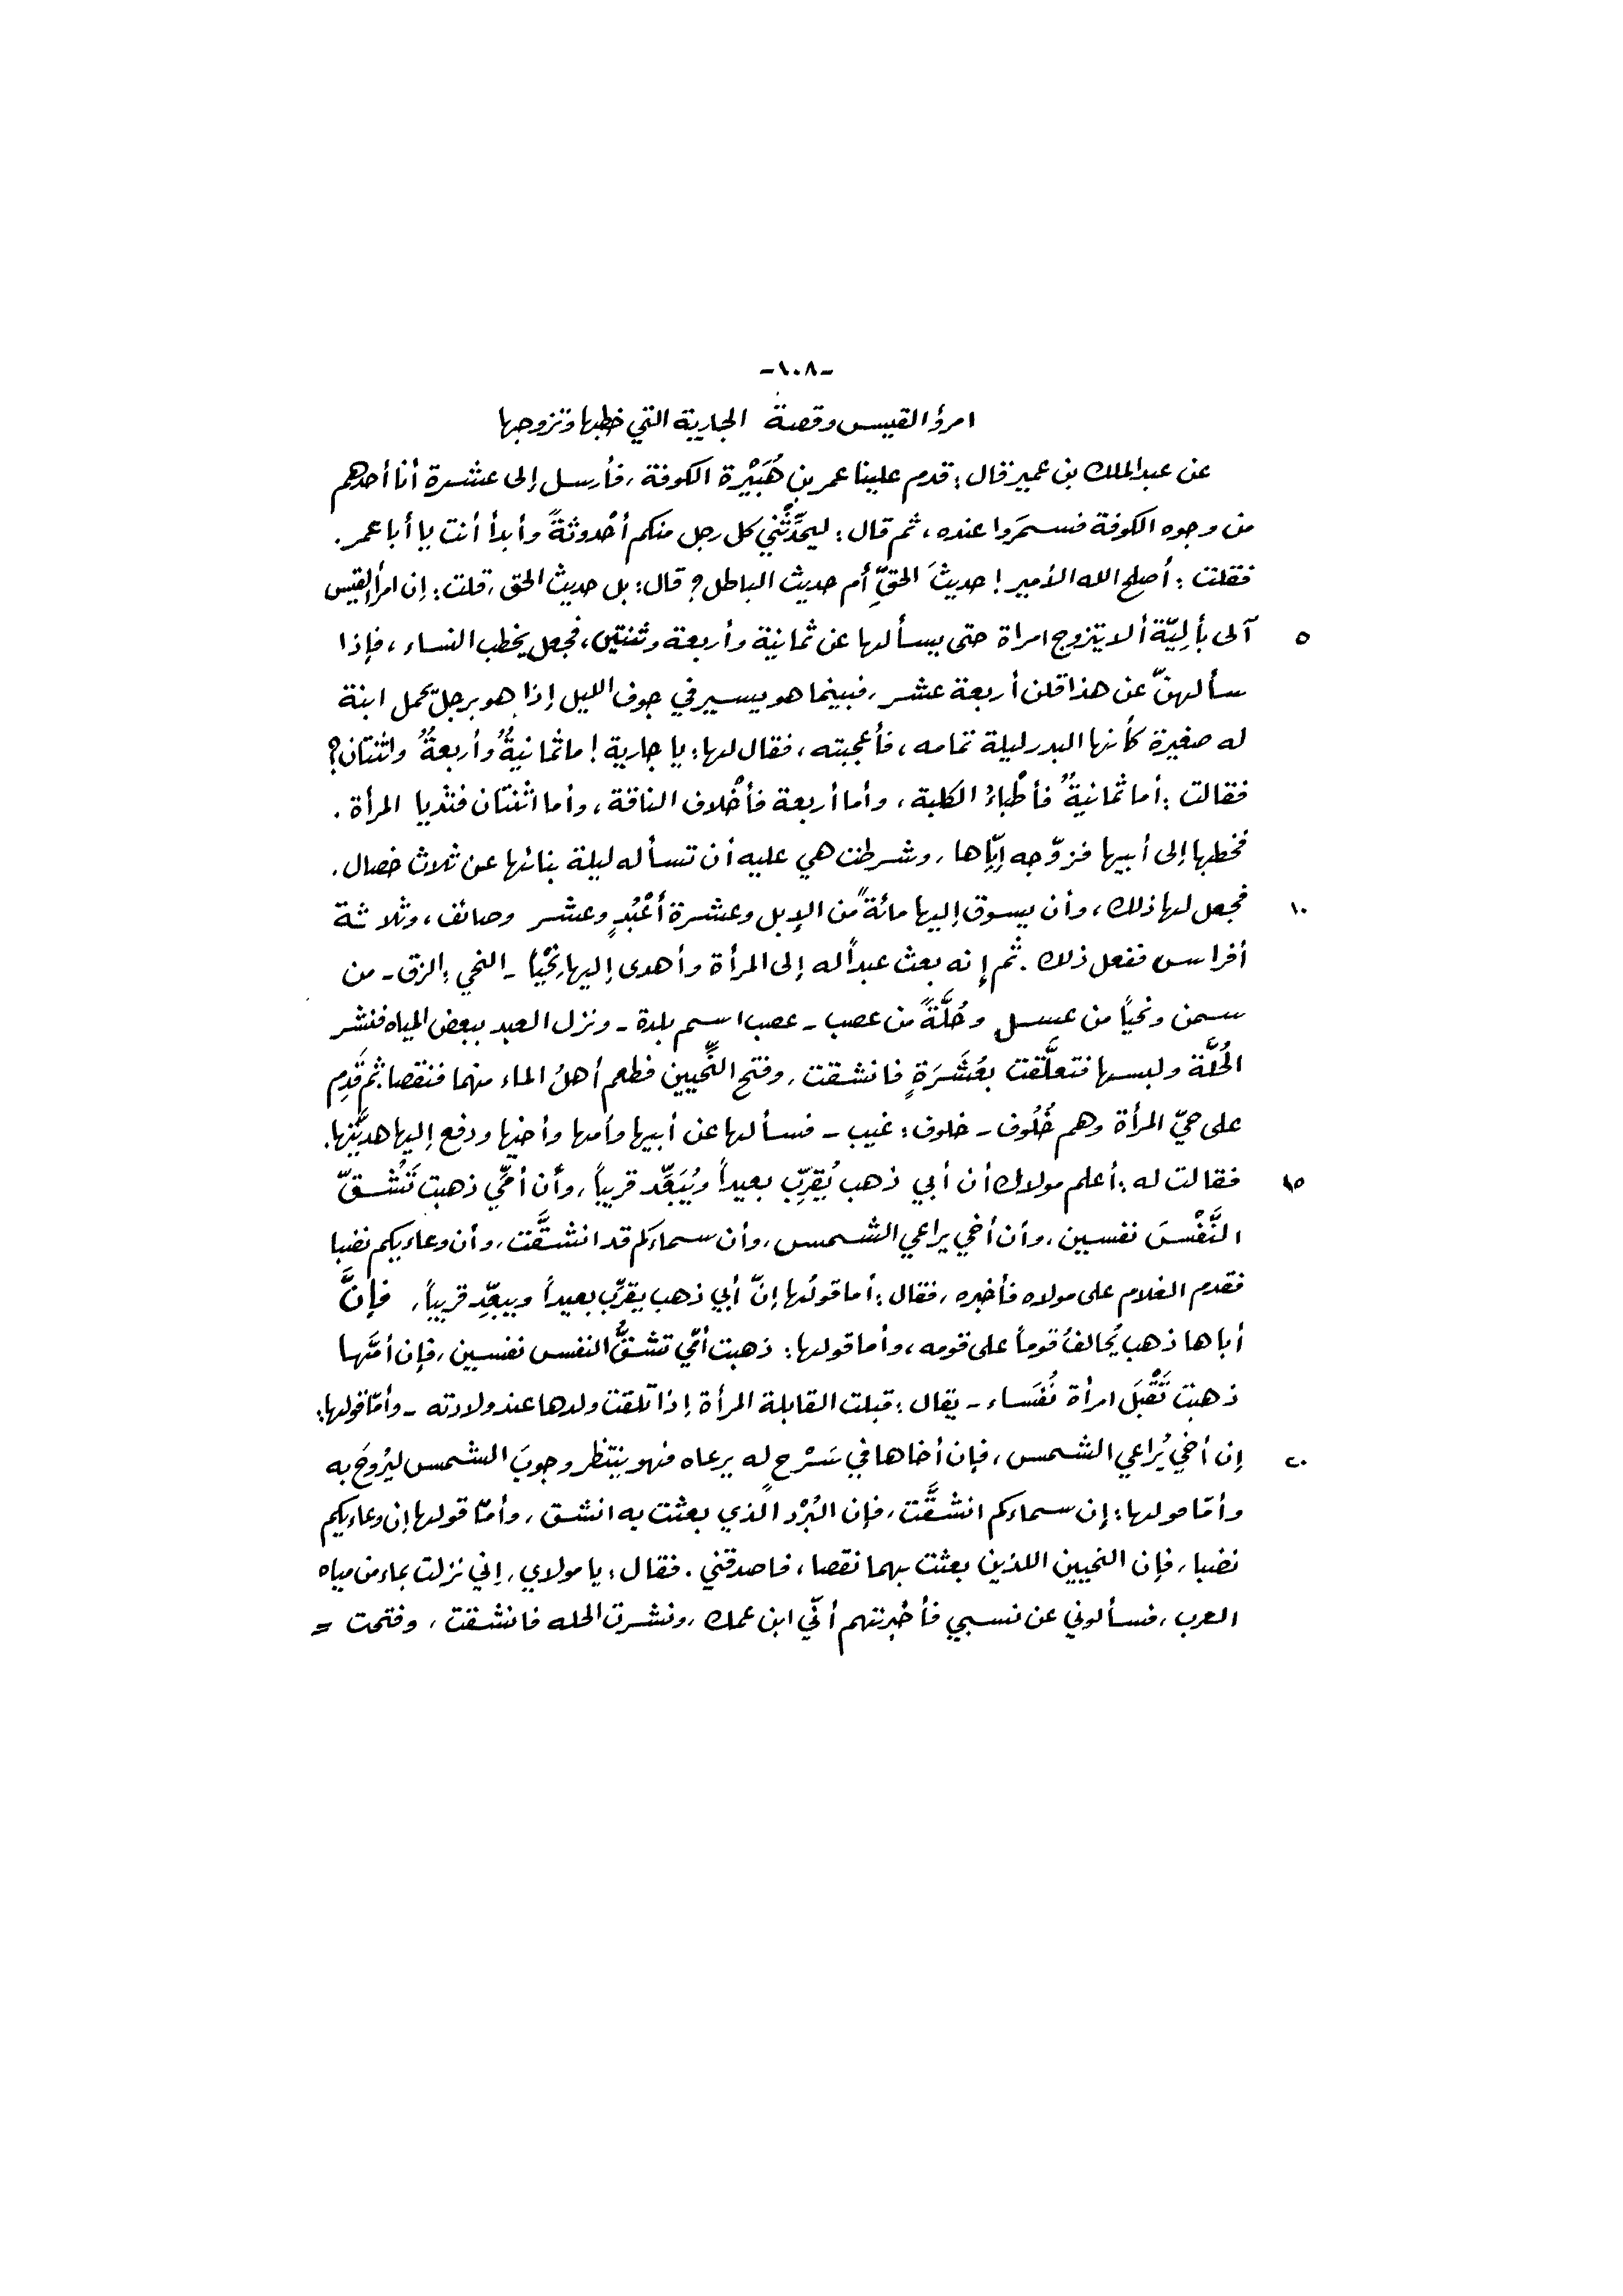 -١٠٨-
امرؤ القيس وقصة الجارية التي خطبها وتزوجها
عن عبد الملك بن عمير قال: قدم علينا عمر بن هُبَيْرة الكوفة، فأرسل إلى عشرة أنا أحدهم
من وجوه الكوفة فسمَروا عنده، ثم قال: ليحدِّثْني كل رجل منكم أُحْدوثةً وأبدأ أنت يا أبا عمر.
فقلت: أصلح الله الأمير! حديثَ الحقِّ أم حديث الباطل؟ قال: بل حديث الحق، قلت: إن امرأ القيس
٥ آلى بأَلِيّة ألا يتزوج امراة حتى يسألها عن ثمانية وأربعة وثنتين، فجعل يخطب النساء، فإذا
سألهنّ عن هذا قلن أربعة عشر، فبينما هو يسير في جوف الليل إذا هو برجل يحمل ابنة
له صغيرة كأنها البدر ليلة تمامه، فأعجبته، فقال لها: يا جارية! ما ثمانيةٌ وأربعةٌ واثنتان؟
فقالت: أما ثمانيةٌ فأطْباءُ الكلبة، وأما أربعة فأخْلاف الناقة، وأما اثنتان فثديا المرأة.
فخطبها إلى أبيها فزوّجه إيّاها، وشرطت هي عليه أن تسأله ليلة بنائها عن ثلاث خصال.
١٠ فجعل لها ذلك، وأن يسوق إليها مائةً من الإبل وعشرة أعْبُدٍ وعشر وصائف، وثلاثة
أفراس ففعل ذلك. ثم إنه بعث عبداً له إلى المرأة وأهدى إليها نِحْياً - النحي: الزق - من
سمن ونحياً من عسل وحُلَّةً من عصب - عصب اسم بلدة - ونزل العبد ببعض المياه فنشر
الحُلَّة ولبسها فتعلَّقت بعُشَرَةٍ فانشقت، وفتح النِّحيين فطعم أهلُ الماء منهما فنقصا ثم قَدِم
على حيّ المرأة وهم خُلُوف - خلوف: غيب - فسألها عن أبيها وأمها وأخيها ودفع إليها هديَّتها.
١٥ فقالت له: أعلم مولاك أن أبي ذهب يُقرِّب بعيداً ويُبَعِّد قريباً، وأن أمّي ذهبت تَشُقّ
النَّفْسَ نفسين، وأن أخي يراعي الشمس، وأن سماءكم قد انشقَّت، وأن وعاءيكم نضبا
فقدم الغلام على مولاه فأخبره، فقال: أما قولُها إنّ أبي ذهب يقرِّب بعيداً ويبعِّد قريباً، فإنَّ
أباها ذهب يُحالفُ قوماً على قومه، وأما قولها: ذهبت أمّي تشقُّ النفس نفسين، فإن أمَّها
ذهبت تَقْبَل امرأة نُفَساء - يقال: قبلت القابلة المرأة إذا تلقت ولدها عند ولادته - وأمّا قولها:
٢٠ إن أخي يُراعي الشمس، فإن أخاها في سَرْحٍ له يرعاه فهو ينتظر وجوبَ الشمس ليُروحَ به
وأمّا قولها: إن سماءكم انشقَّت، فإن البُرْد الذي بعثت به انشق، وأمّا قولها إن وعاءيكم
نضبا، فإن النحيين اللذين بعثت بهما نقصا، فاصدقني. فقال: يا مولاي، إني نزلت بماء من مياه
العرب، فسألوني عن نسبي فأخْبرتهم أنّي ابن عمك، ونشرت الحله فانشقت، وفتحت =